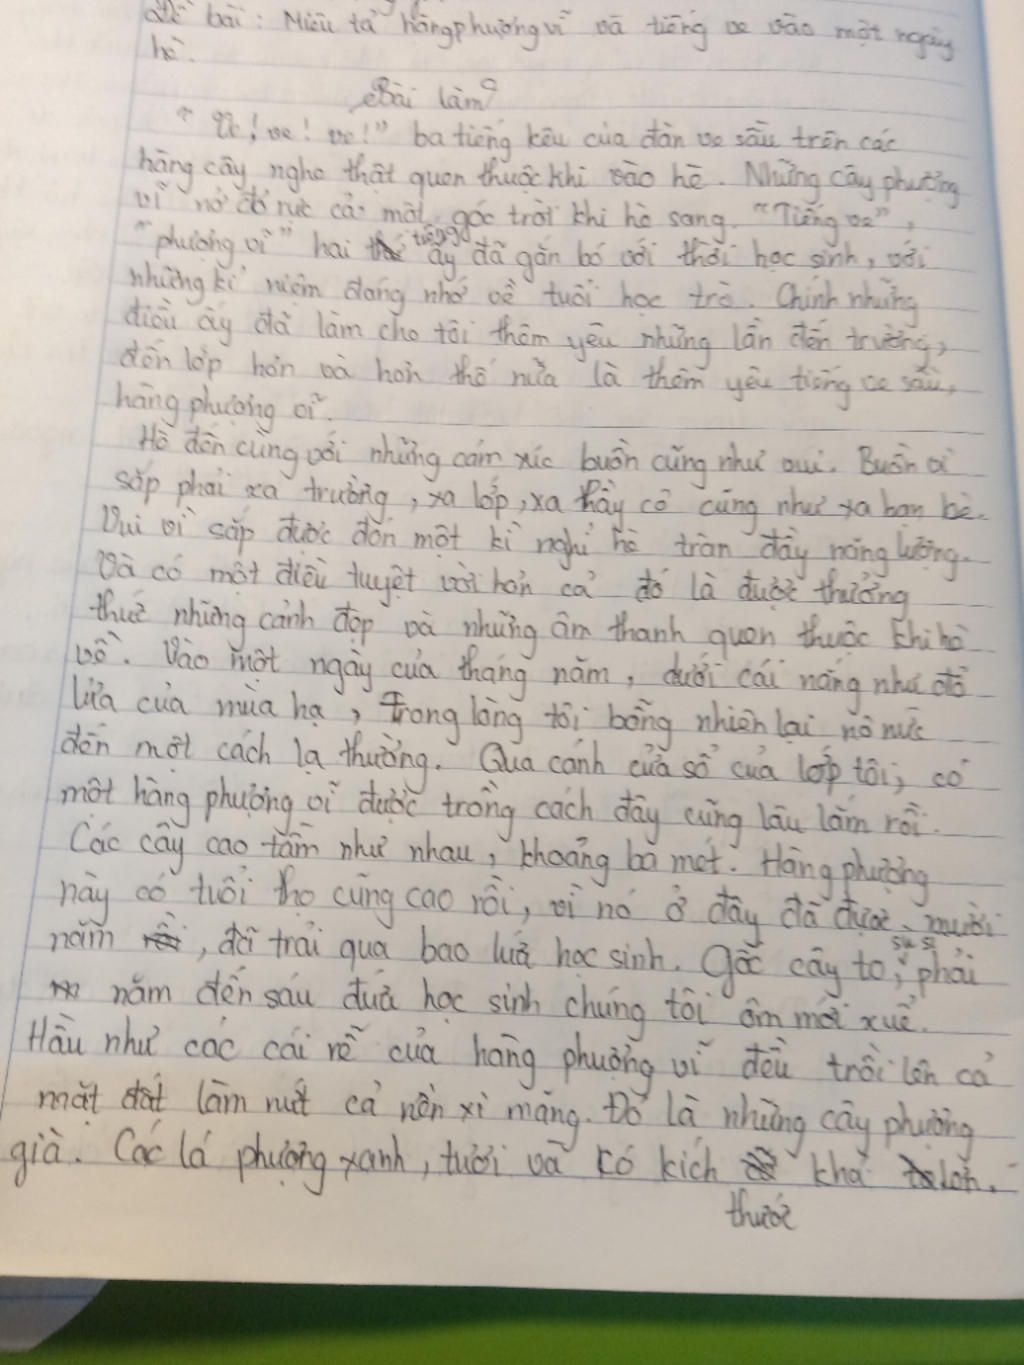 Đề bài: Miêu tả hàng phượng vĩ và tiếng ve vào một ngày
hè.
Bài làm
"Ve! ve! ve!" ba tiếng kêu của đàn ve sầu trên các
hàng cây nghe thật quen thuộc khi vào hè. Những cây phượng
vĩ nở đỏ rực cả một góc trời khi hè sang. "Tiếng ve",
"phượng vĩ" hai tiếng ấy đã gắn bó với thời học sinh, với
những kỉ niệm đáng nhớ về tuổi học trò. Chính những
điều ấy đã làm cho tôi thêm yêu những lần đến trường,
đến lớp hơn và hơn thế nữa là thêm yêu tiếng ve sầu,
hàng phượng vĩ.
Hè đến cùng với những cảm xúc buồn cũng như vui. Buồn vì
sắp phải xa trường, xa lớp, xa thầy cô cũng như xa bạn bè.
Vui vì sắp được đón một kì nghỉ hè tràn đầy năng lượng.
Và có một điều tuyệt vời hơn cả đó là được thưởng
thức những cảnh đẹp và những âm thanh quen thuộc khi hè
về. Vào một ngày của tháng năm, dưới cái nắng như đổ
lửa của mùa hạ, trong lòng tôi bỗng nhiên lại nô nức
đến một cách lạ thường. Qua cánh cửa sổ của lớp tôi, có
một hàng phượng vĩ được trồng cách đây cũng lâu lắm rồi.
Các cây cao tầm như nhau, khoảng ba mét. Hàng phượng
này có tuổi thọ cũng cao rồi, vì nó ở đây đã được mười
năm, đã trải qua bao lứa học sinh. Gốc cây to, sù sì, phải
năm đến sáu đứa học sinh chúng tôi ôm mới xuể.
Hầu như các cái rễ của hàng phượng vĩ đều trồi lên cả
mặt đất làm nứt cả nền xi măng. Đó là những cây phượng
già. Các lá phượng xanh, tươi và có kích thước khá lớn.